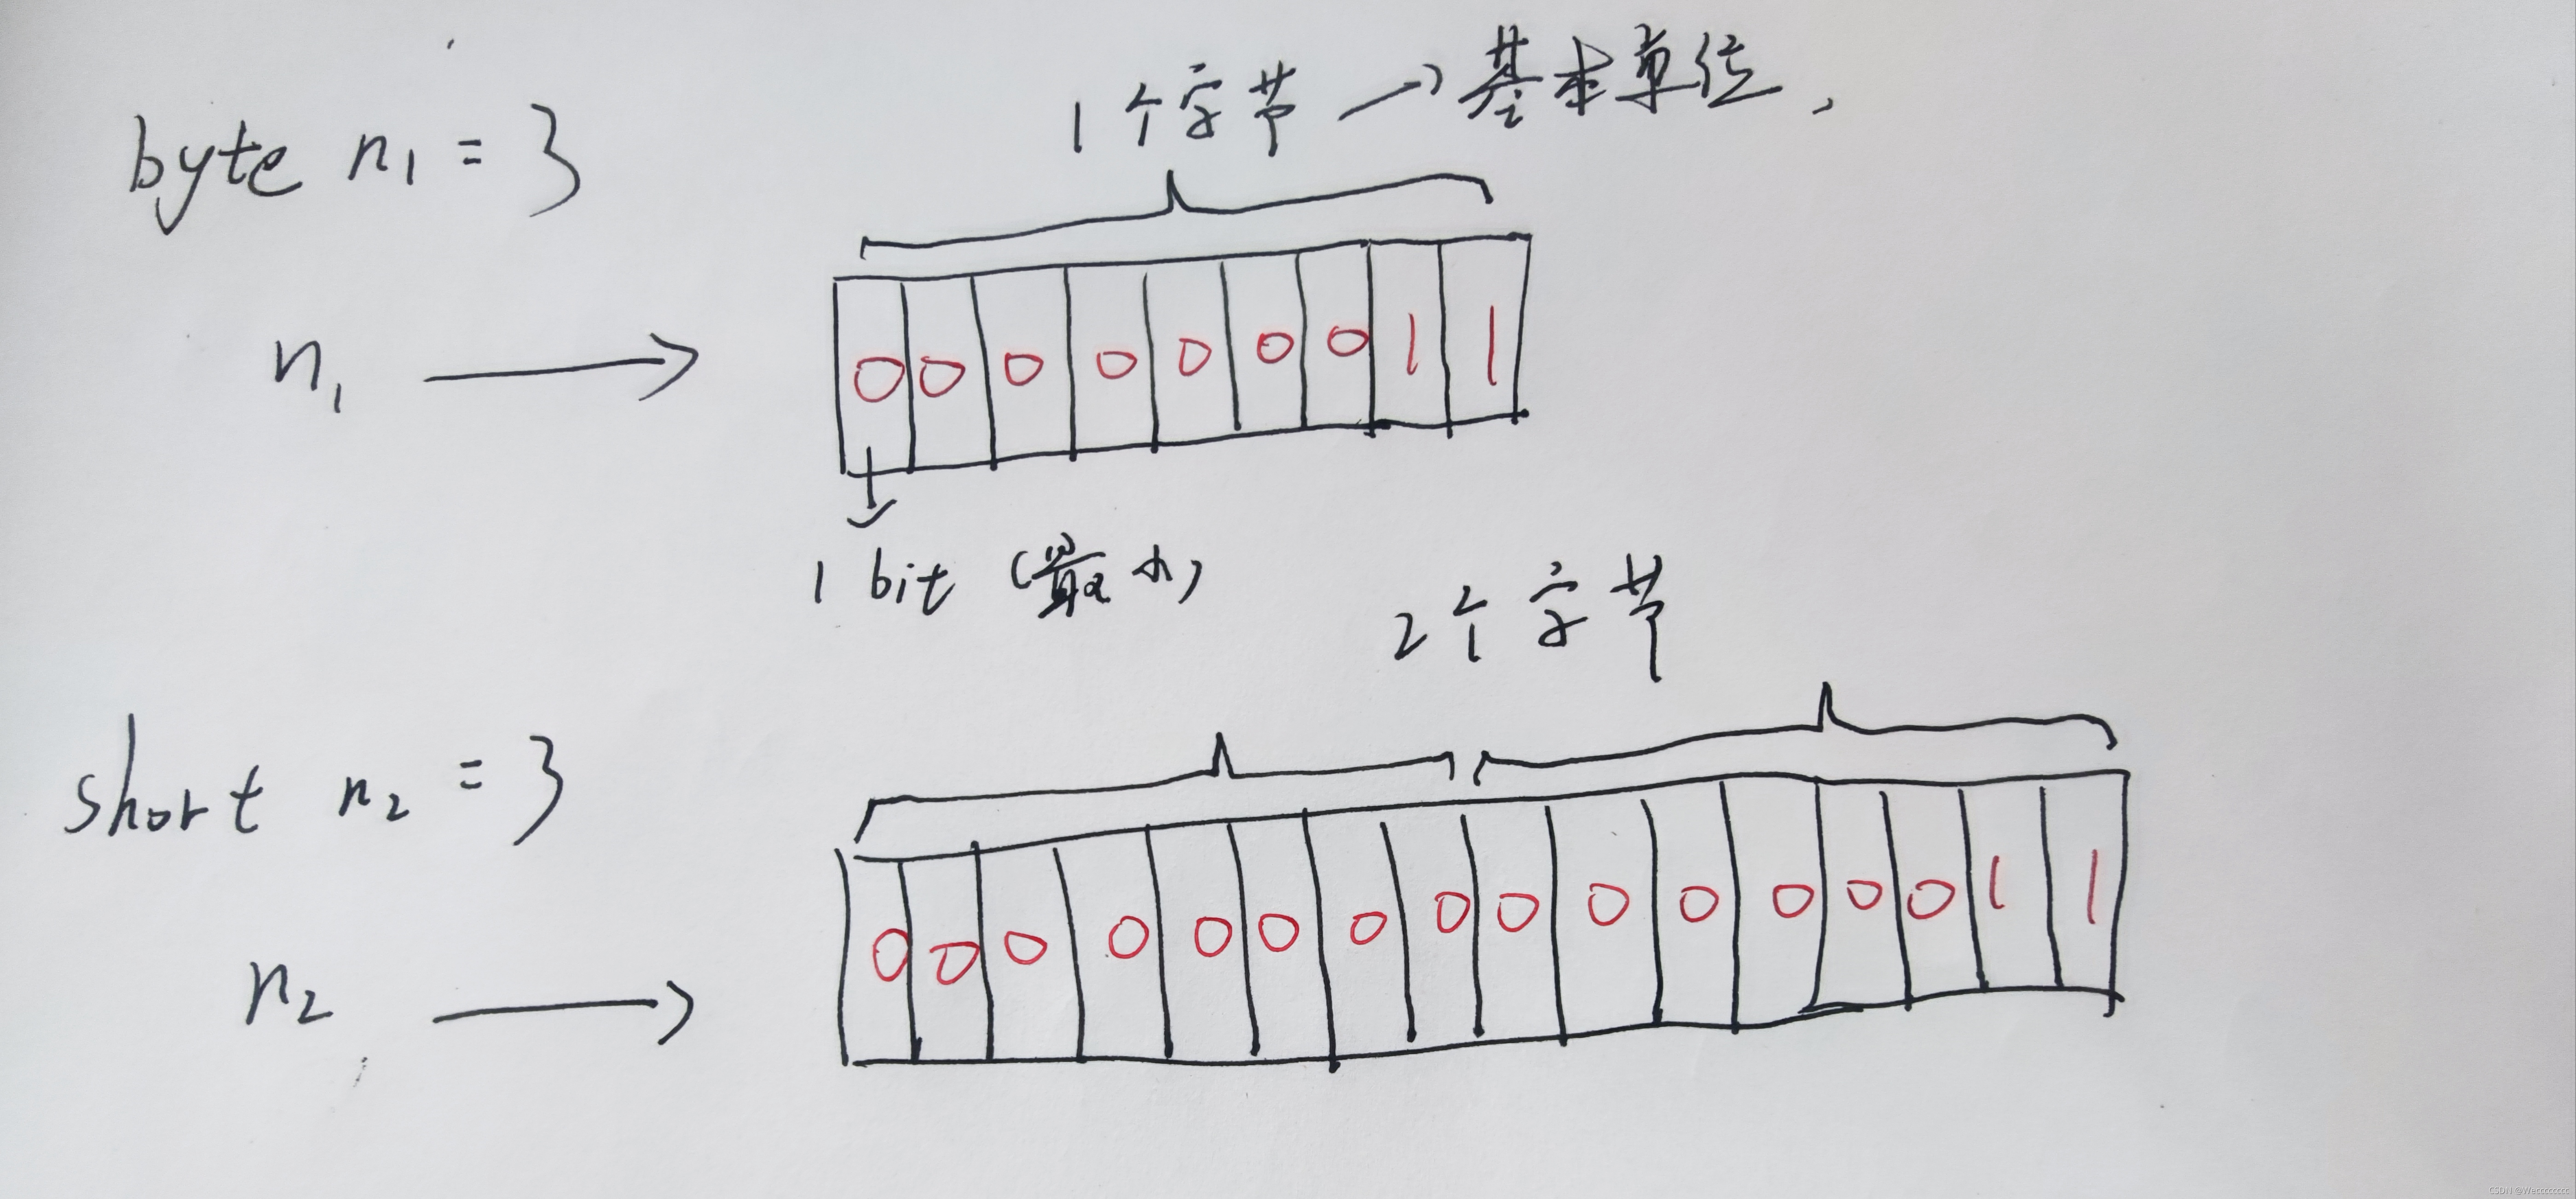 1个字节 → 基本单位,
byte n1 = 3
n1 → 0 0 0 0 0 0 0 1 1
1 bit (最小)
2个字节
short n2 = 3
n2 → 0 0 0 0 0 0 0 0 0 0 0 0 0 0 1 1